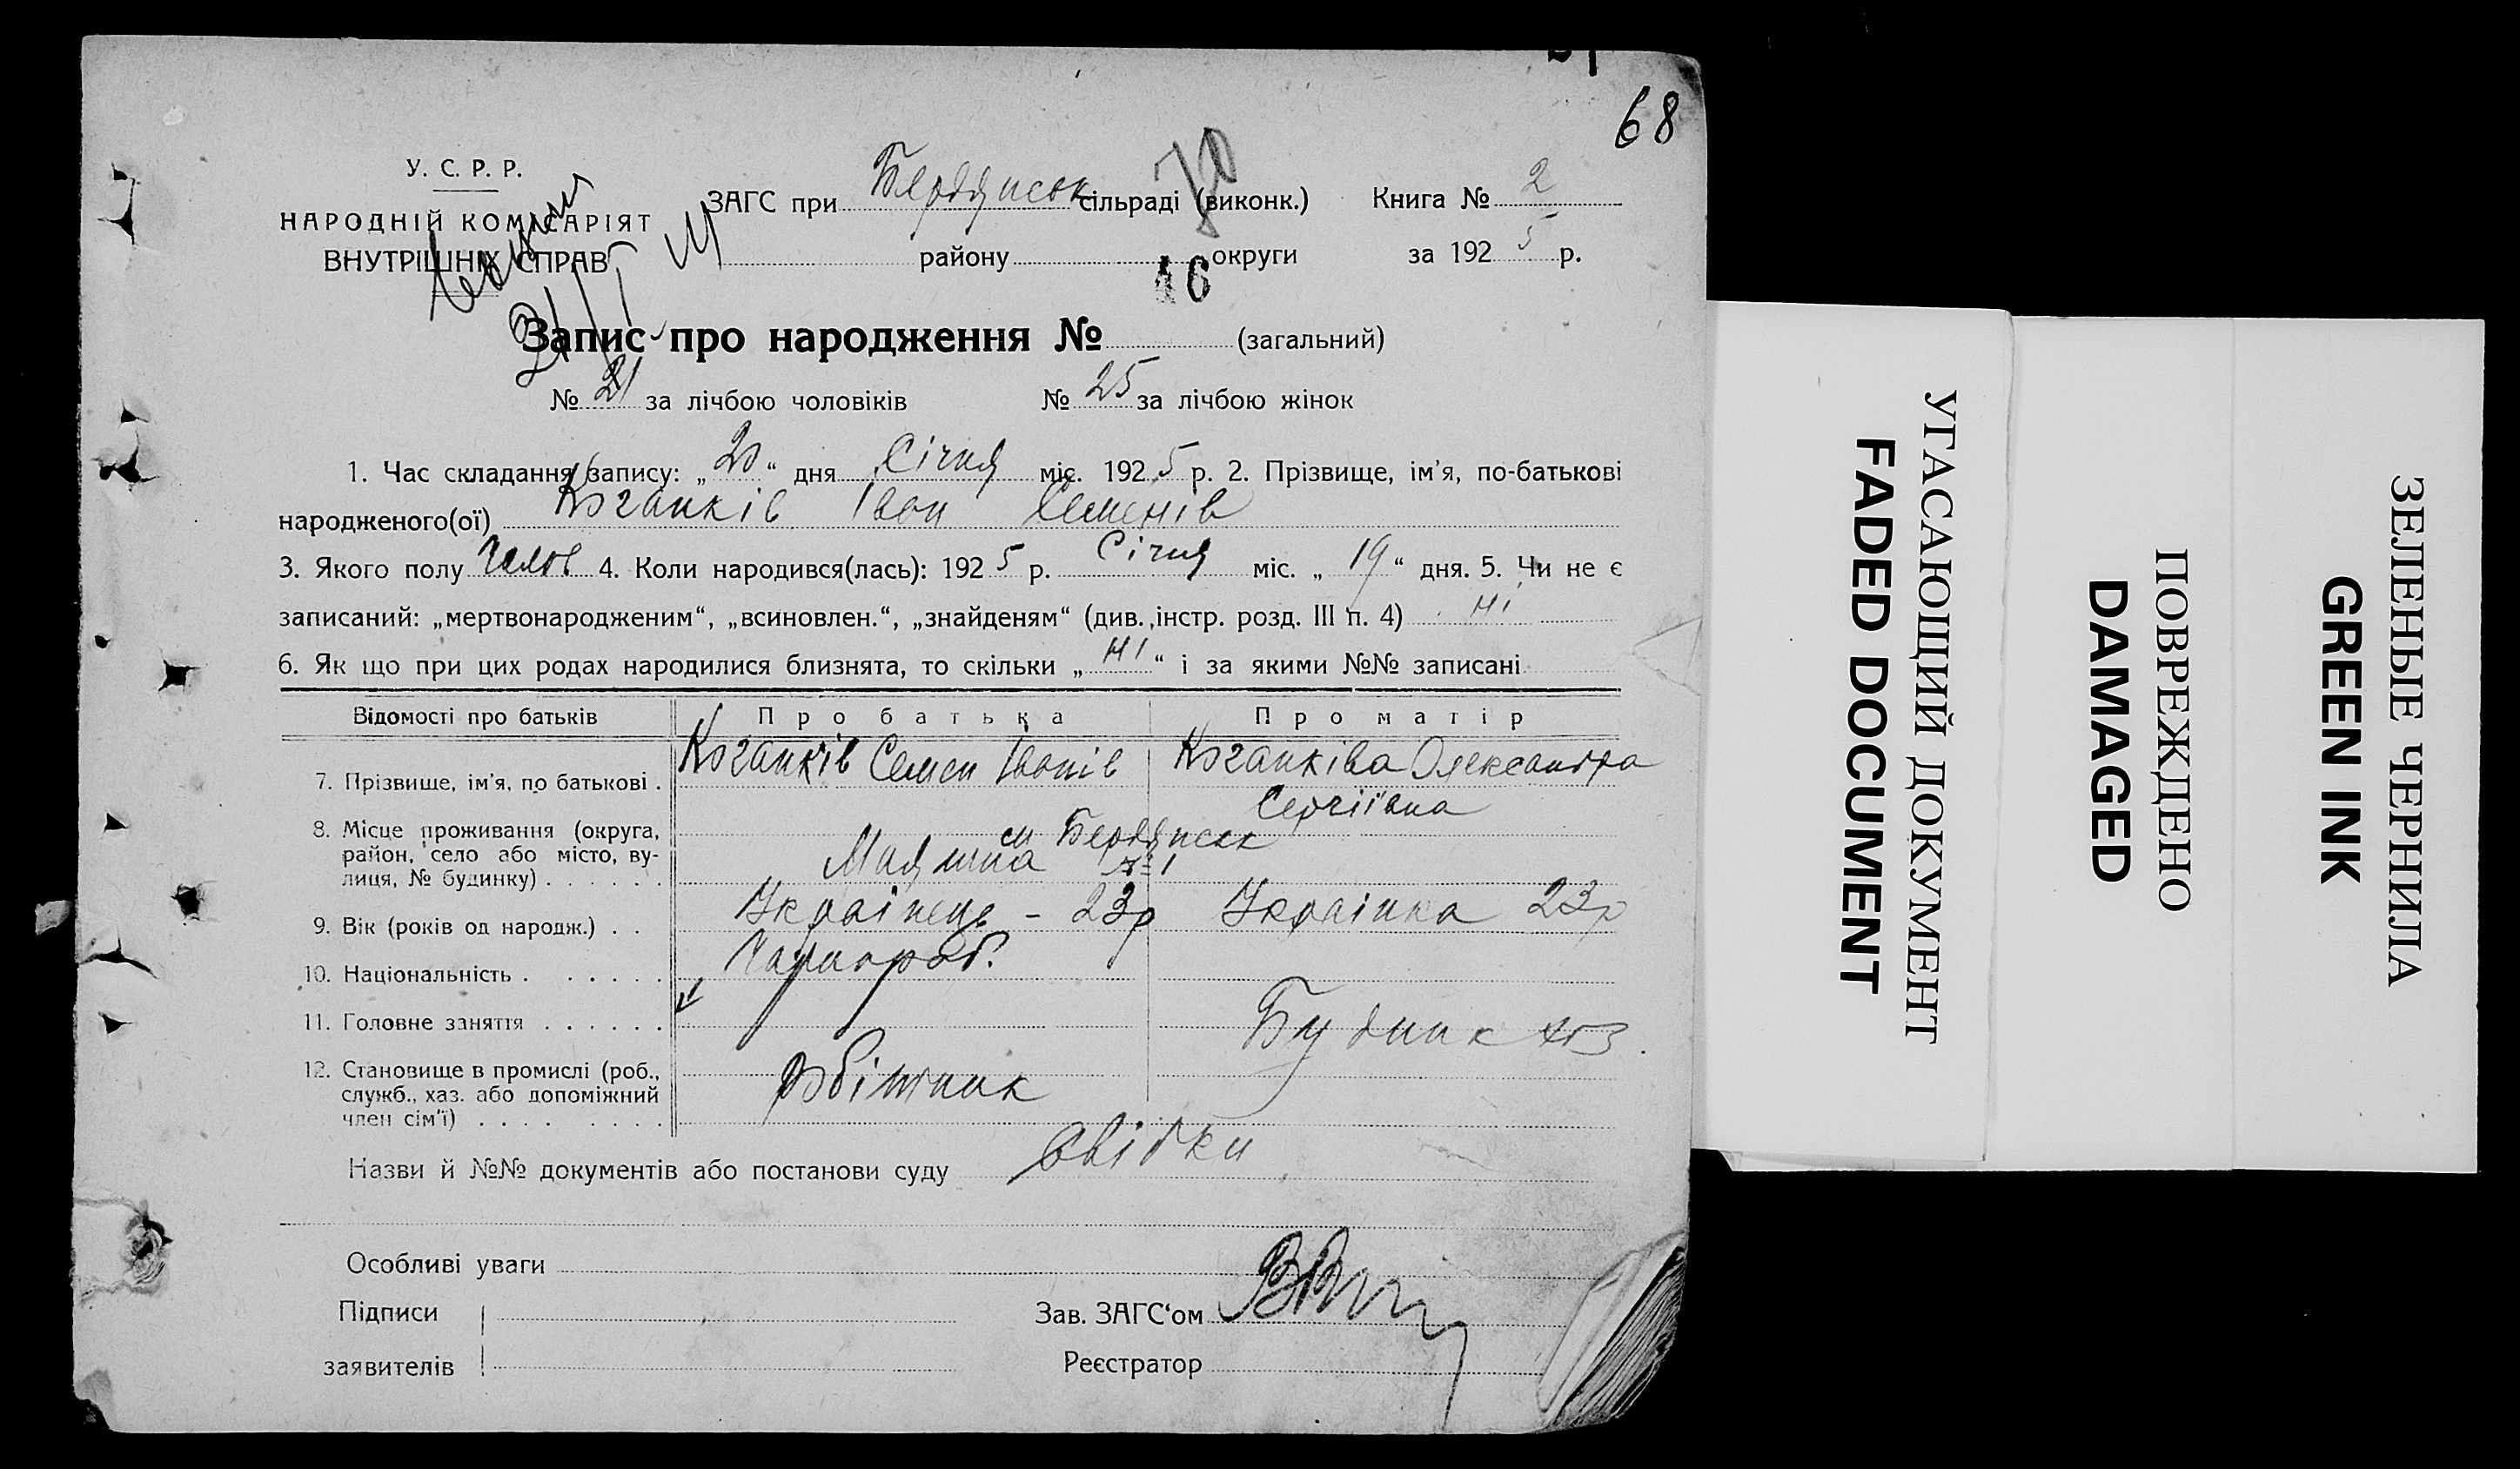 68
У. С. Р. Р.
НАРОДНІЙ КОМІСАРІЯТ
ВНУТРІШНІХ СПРАВ
ЗАГС при Бердянськ сільраді (виконк.) Книга № 2
району округи за 1925 р.
46
Запис про народження № (загальний)
№ 21 за лічбою чоловіків № 25 за лічбою жінок
1. Час складання запису: „20“ дня Січня міс. 1925 р. 2. Прізвище, ім’я, по-батькові
народженого(ої) Коганків Іван Семенів
3. Якого полу Чолов 4. Коли народився(лась): 1925 р. Січня міс. „19“ дня. 5. Чи не є
записаний: „мертвонародженим“, „всиновлен.“, „знайденям“ (див. інстр. розд. III п. 4) ні
6. Як що при цих родах народилися близнята, то скільки „ні“ і за якими №№ записані
Відомості про батьків Про батька Про матір
7. Прізвище, ім’я, по батькові . Коганків Семен Іванів Коганківа Олександра
Сергіївна
8. Місце проживання (округа, район, село або місто, вулиця, № будинку) . . . . . . м Бердянськ
№ 1
9. Вік (років од народж.) . . Українець – 23р Українка 23р
10. Національність . . . . . . Чорнороб.
11. Головне заняття . . . . . . Будинк хоз.
12. Становище в промислі (роб., служб., хаз. або допоміжний член сім’ї) . . . . . . . . робітник
Назви й №№ документів або постанови суду Свідки
Особливі уваги
Підписи Зав. ЗАГС‘ом
заявителів Реєстратор
УГАСАЮЩИЙ ДОКУМЕНТ
FADED DOCUMENT
ПОВРЕЖДЕНО
DAMAGED
ЗЕЛЕНЫЕ ЧЕРНИЛА
GREEN INK